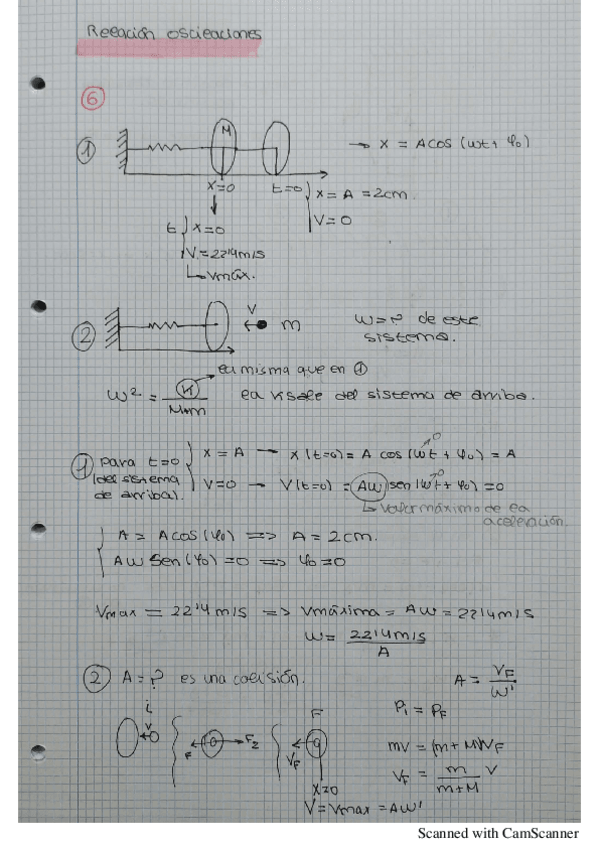 Relación oscilaciones
6
1
M
→ x = A cos (ωt + φ₀)
x=0
t=0
x = A = 2cm
V = 0
t
x=0
V = 22'4m/s
↳ Vmáx.
2
V
m
ω=? de este
sistema.
la misma que en 1
ω² = K / M+m
la k sale del sistema de arriba.
1 para t=0
(del sistema
de arriba).
x = A → x(t=0) = A cos (ωt⁰ + φ₀) = A
V=0 → V(t=0) = Aω sen (ωt⁰ + φ₀) = 0
↳ valor máximo de la
aceleración.
A = A cos (φ₀) => A = 2cm.
Aω sen (φ₀) = 0 => φ₀ = 0
Vmax = 22'4 m/s => Vmáxima = Aω = 22'4 m/s
ω = 22'4 m/s / A
2 A = ? es una colisión.
A = VF / ω'
i
V
F
F₂
F
VF
x=0
V = Vmax = Aω'
Pi = PF
mv = (m+M)VF
VF = m / m+M V
Scanned with CamScanner